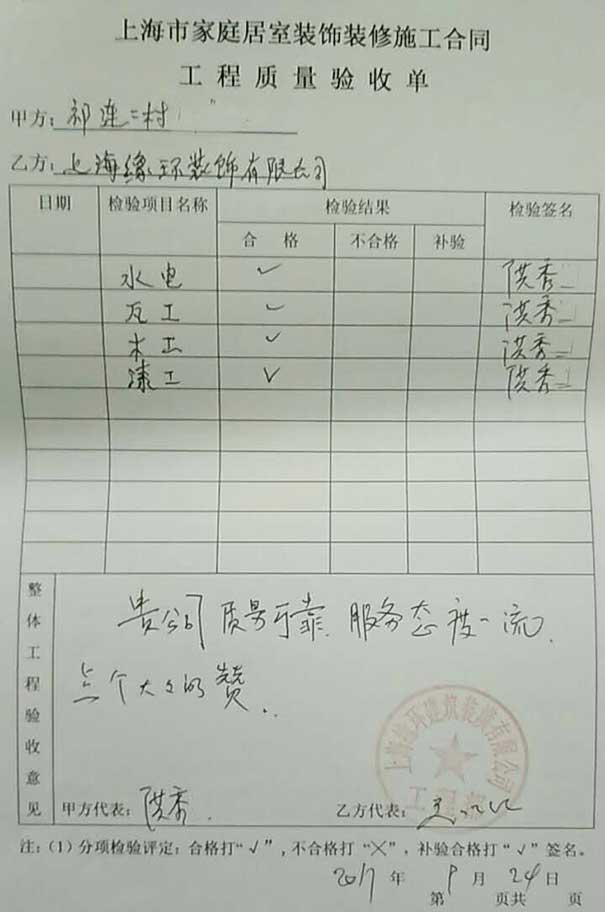 上海市家庭居室装饰装修施工合同
工程质量验收单
甲方：祁连二村
乙方：上海缘环装饰有限公司
日期 检验项目名称 检验结果 检验签名
合格 不合格 补验
水电 ✓ 洪秀
瓦工 ✓ 洪秀
木工 ✓ 洪秀
漆工 ✓ 洪秀
整体工程验收意见
贵公司质量可靠.服务态度一流.
点个大大的赞..
甲方代表：洪秀. 乙方代表：
注：（1）分项检验评定：合格打“√”，不合格打“×”，补验合格打“√”签名。
2017年9月24日
第 页共 页